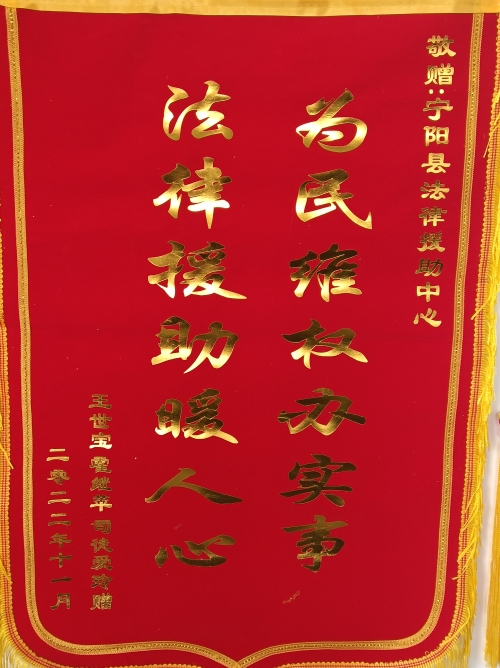 敬赠:宁阳县法律援助中心
为民维权办实事
法律援助暖人心
王世宝霍继苹司徒爱玲赠
二零二二年十一月